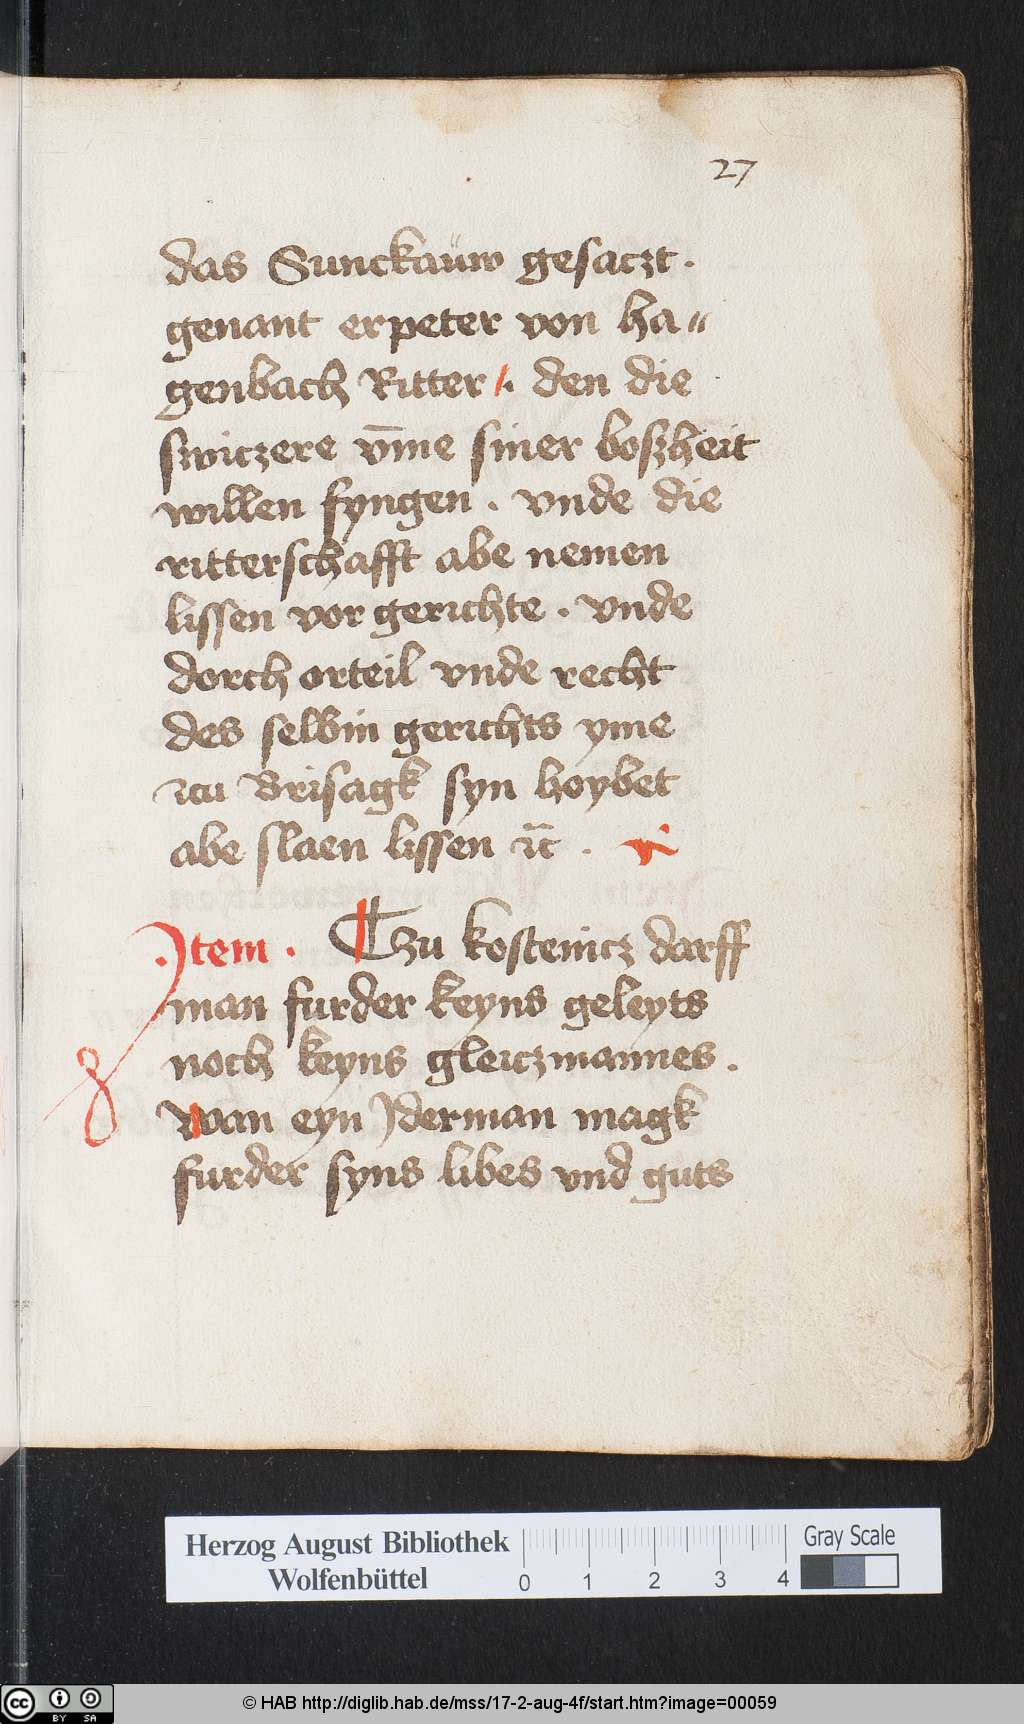 27
das Sunckaüw gesaczt.
genant er peter von ha〃
genbach Ritter /. den die
swiczere vm̄e siner boszheit
willen fyngen. vnde die
ritterschafft abe nemen
lissen vor gerichte. vnde
dorch orteil vnde recht
des selbin gerichts yme
zcu Brisagk syn hoybet
abe slaen lissen ꝛc̄.
.Jtem. Tzu kostenicz darff
man furder keyns geleyts
noch keyns gleiczmannes.
Wan eyn Jderman magk
furder syns libes vnd guts
Herzog August Bibliothek
Wolfenbüttel
0 1 2 3 4
Gray Scale
cc BY SA
© HAB http://diglib.hab.de/mss/17-2-aug-4f/start.htm?image=00059